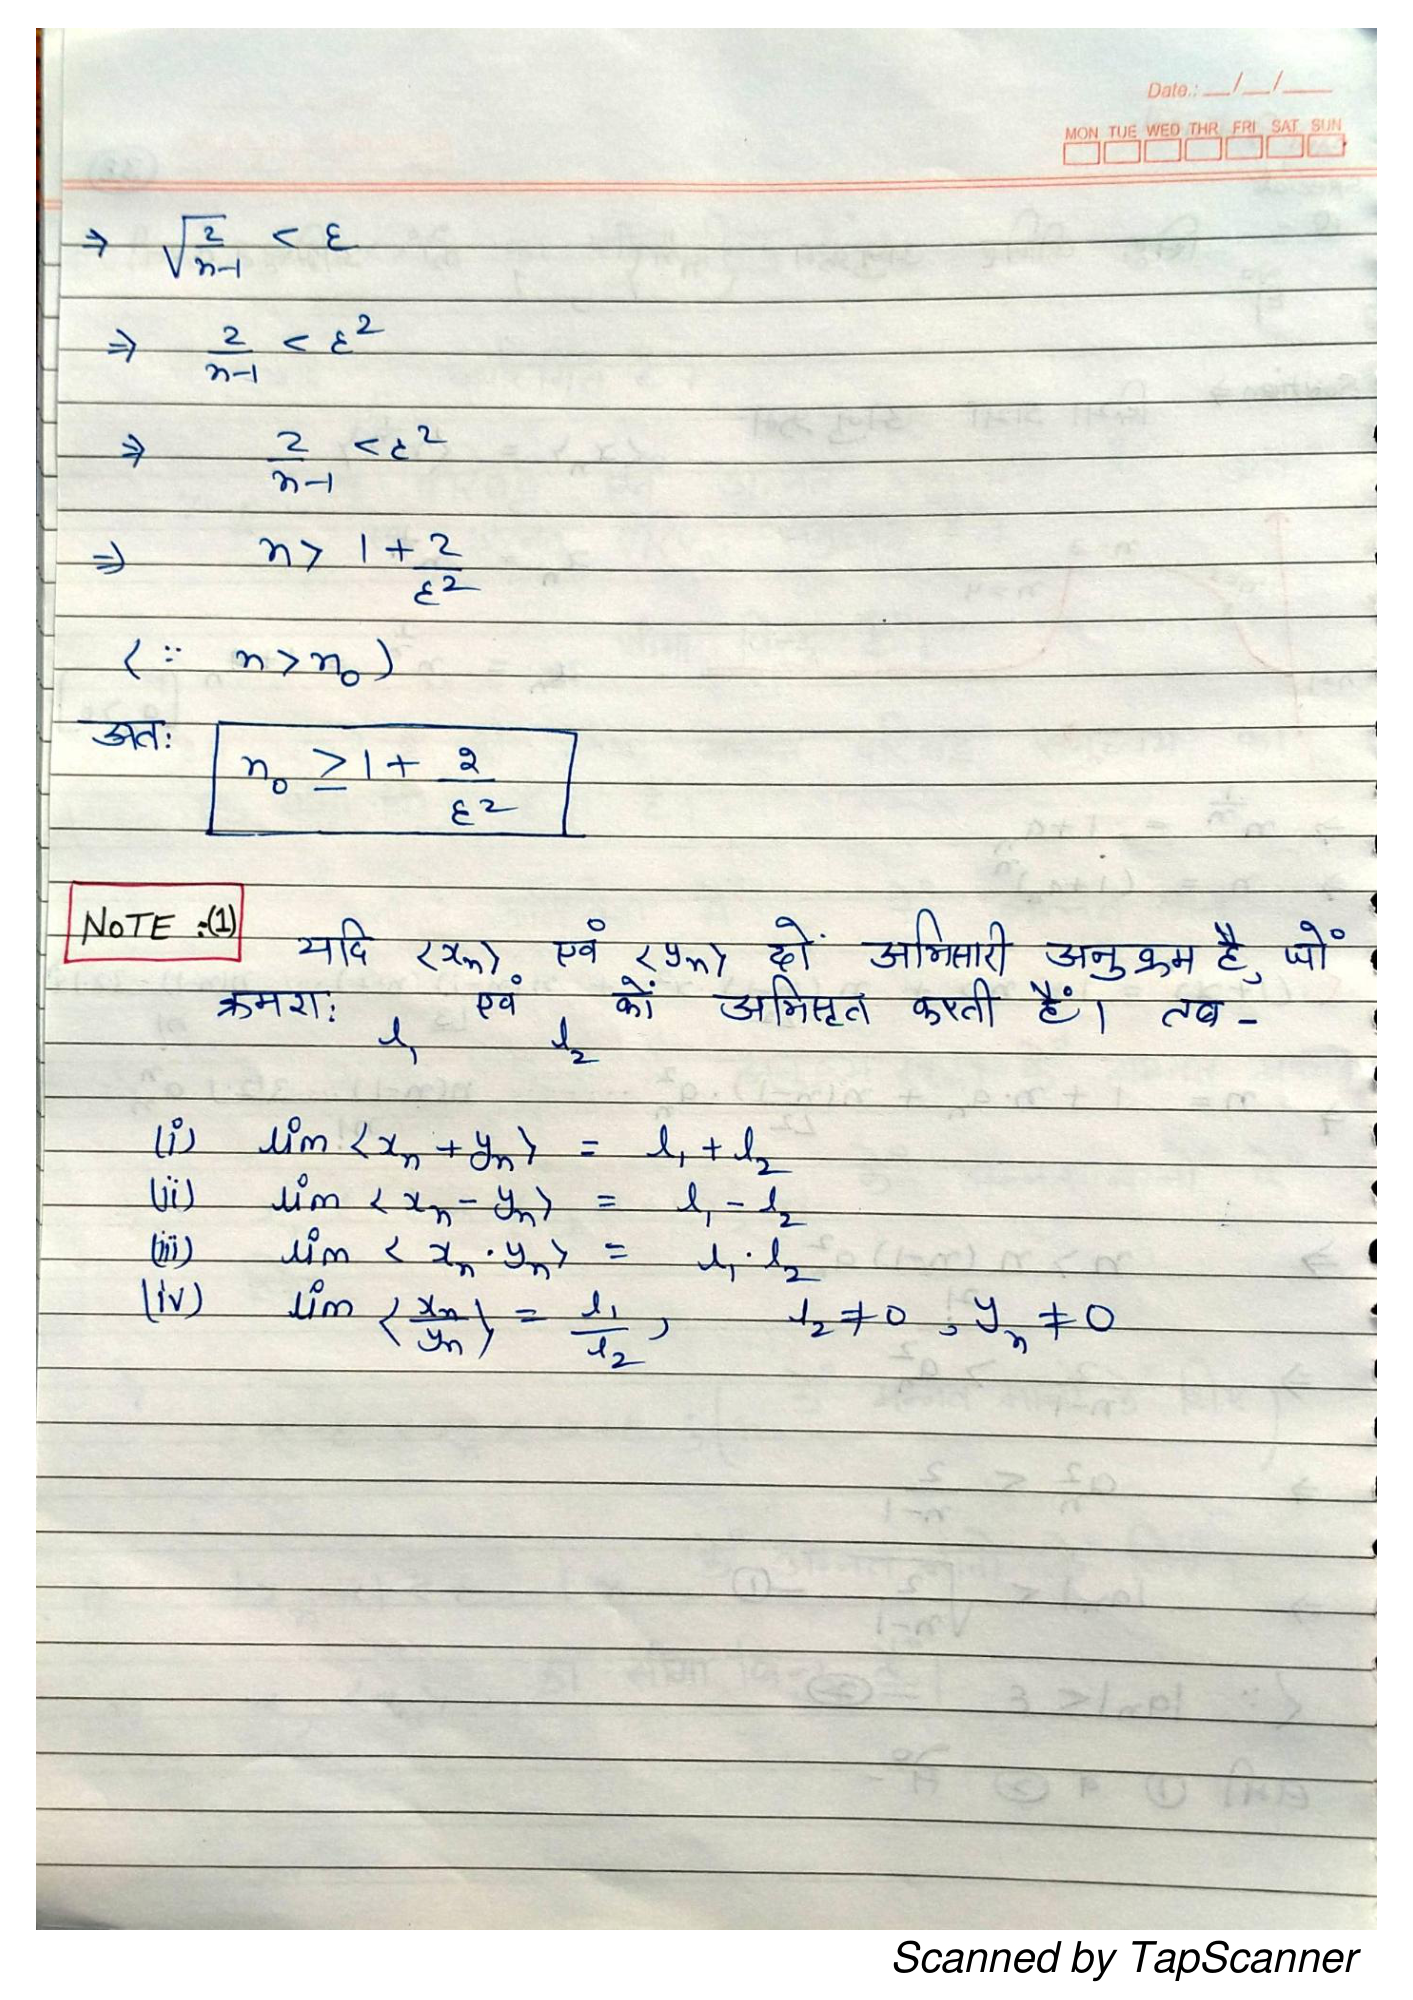 Date.: __/__/__
MON TUE WED THR FRI SAT SUN
⇒ √(2/(n-1)) < ε
⇒ 2/(n-1) < ε²
⇒ 2/(n-1) < ε²
⇒ n > 1 + 2/ε²
(∵ n > n₀)
अतः n₀ ≥ 1 + 2/ε²
NOTE :(1) यदि <xₙ> एवं <yₙ> दों अभिसारी अनुक्रम है, जों
क्रमशः l₁ एवं l₂ कों अभिसृत करती हैं। तब -
(i) lim <xₙ + yₙ> = l₁ + l₂
(ii) lim <xₙ - yₙ> = l₁ - l₂
(iii) lim <xₙ · yₙ> = l₁ · l₂
(iv) lim <xₙ/yₙ> = l₁/l₂, l₂ ≠ 0, yₙ ≠ 0
Scanned by TapScanner